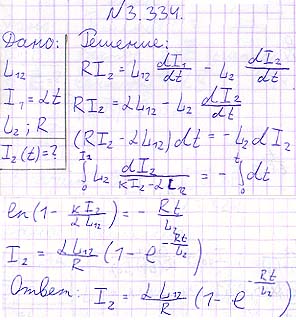 №3.334.
Дано:
L₁₂
I₁ = αt
L₂; R
I₂(t) = ?
Решение:
RI₂ = L₁₂ dI₁/dt - L₂ dI₂/dt
RI₂ = αL₁₂ - L₂ dI₂/dt
(RI₂ - αL₁₂)dt = -L₂dI₂
∫₀^I₂ L₂ dI₂/(RI₂ - αL₁₂) = -∫₀^t dt
ln(1 - RI₂/αL₁₂) = - Rt/L₂
I₂ = αL₁₂/R (1 - e^(-Rt/L₂))
Ответ: I₂ = αL₁₂/R (1 - e^(-Rt/L₂))